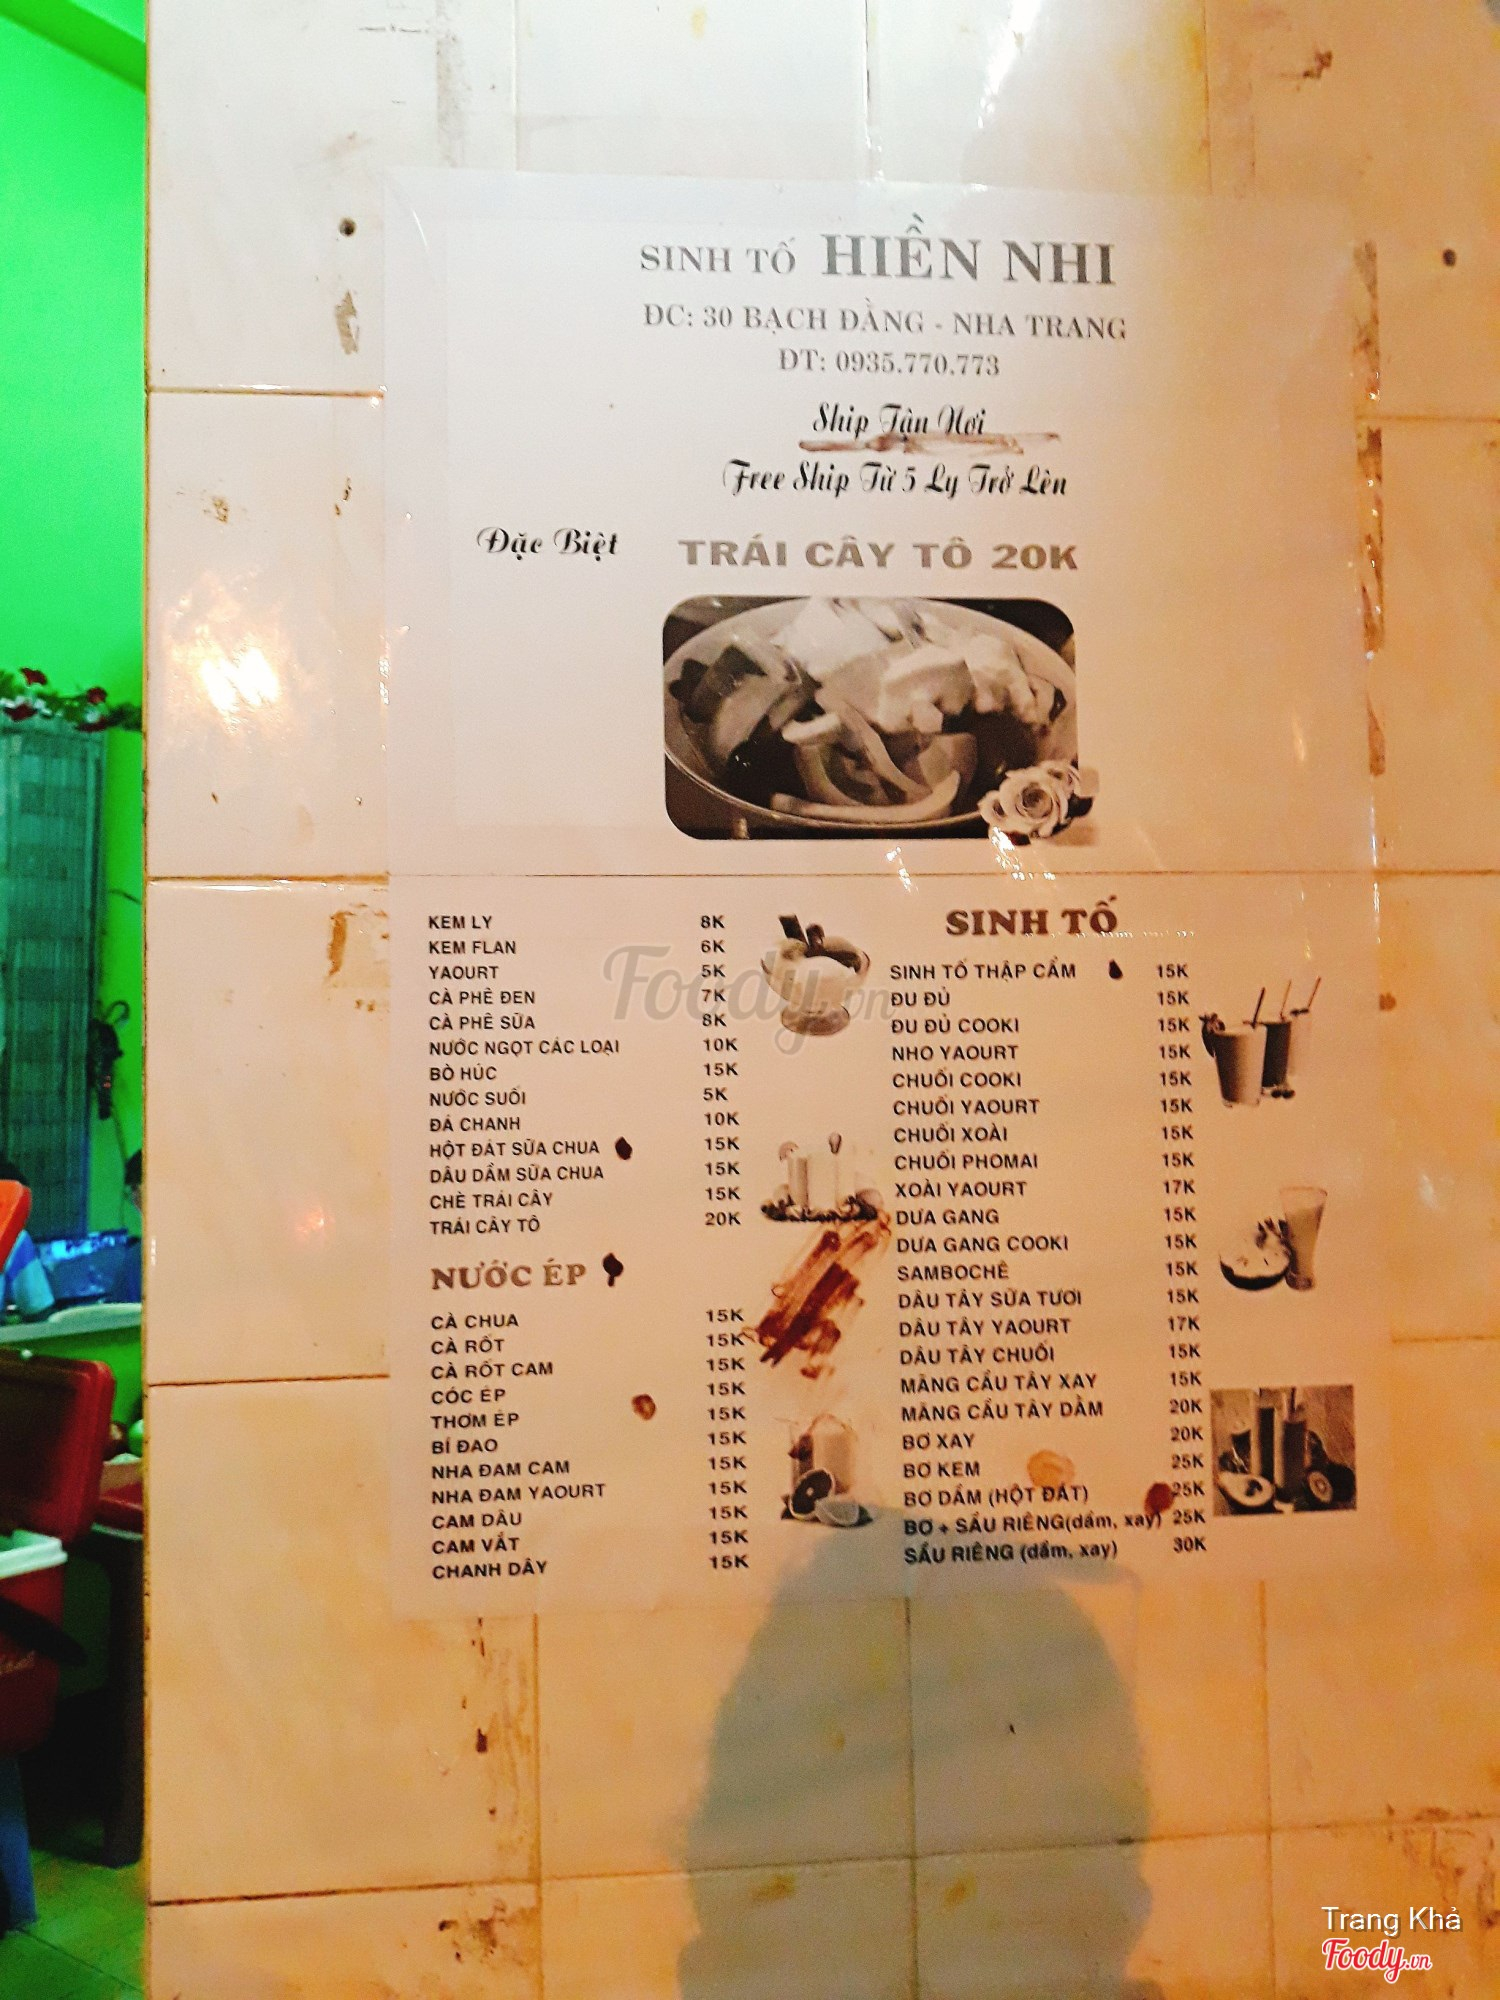 SINH TỐ HIỀN NHI
ĐC: 30 BẠCH ĐẰNG - NHA TRANG
ĐT: 0935.770.773
Ship Tận Nơi
Free Ship Từ 5 Ly Trở Lên
Đặc Biệt TRÁI CÂY TÔ 20K
KEM LY 8K
KEM FLAN 6K
YAOURT 5K
CÀ PHÊ ĐEN 7K
CÀ PHÊ SỮA 8K
NƯỚC NGỌT CÁC LOẠI 10K
BÒ HÚC 15K
NƯỚC SUỐI 5K
ĐÁ CHANH 10K
HỘT ĐÁT SỮA CHUA 15K
DÂU DẦM SỮA CHUA 15K
CHÈ TRÁI CÂY 15K
TRÁI CÂY TÔ 20K
NƯỚC ÉP
CÀ CHUA 15K
CÀ RỐT 15K
CÀ RỐT CAM 15K
CÓC ÉP 15K
THƠM ÉP 15K
BÍ ĐAO 15K
NHA ĐAM CAM 15K
NHA ĐAM YAOURT 15K
CAM DÂU 15K
CAM VẮT 15K
CHANH DÂY 15K
SINH TỐ
SINH TỐ THẬP CẨM 15K
ĐU ĐỦ 15K
ĐU ĐỦ COOKI 15K
NHO YAOURT 15K
CHUỐI COOKI 15K
CHUỐI YAOURT 15K
CHUỐI XOÀI 15K
CHUỐI PHOMAI 15K
XOÀI YAOURT 17K
DƯA GANG 15K
DƯA GANG COOKI 15K
SAMBOCHÊ 15K
DÂU TÂY SỮA TƯƠI 15K
DÂU TÂY YAOURT 17K
DÂU TÂY CHUỐI 15K
MÃNG CẦU TÂY XAY 15K
MÃNG CẦU TÂY DẦM 20K
BƠ XAY 20K
BƠ KEM 25K
BƠ DẦM (HỘT ĐÁT) 25K
BƠ + SẦU RIÊNG(dầm, xay) 25K
SẦU RIÊNG (dầm, xay) 30K
Foody.vn
Trang Khả
Foody.vn